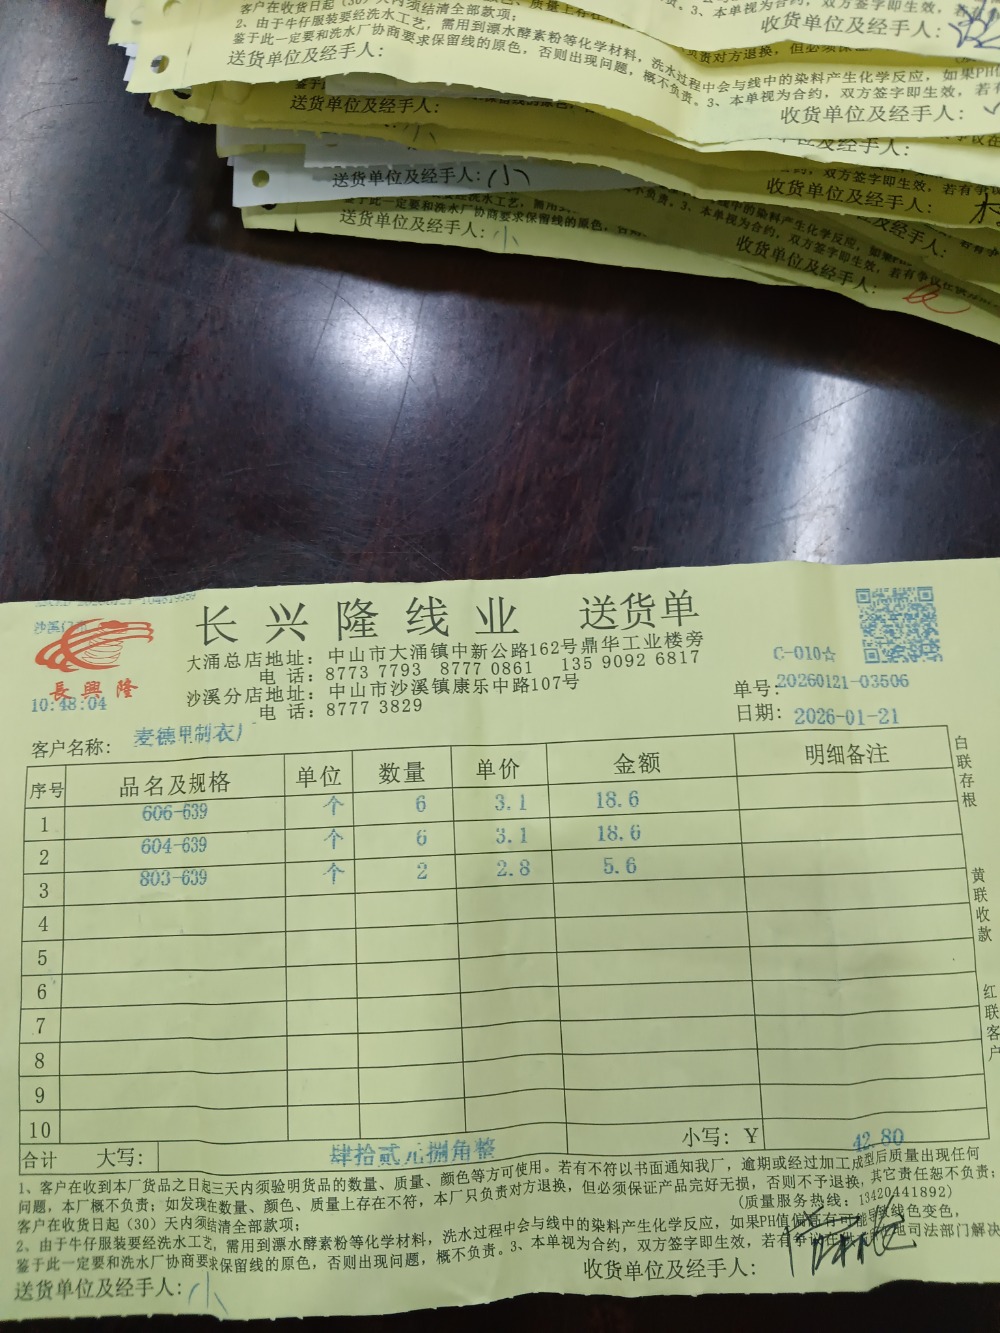 客户在收货日起(30)天内须结清全部款项;
2、由于牛仔服装要经洗水工艺,需用到漂水酵素粉等化学材料,洗水过程中会与线中的染料产生化学反应,如果PH值
鉴于此一定要和洗水厂协商要求保留线的原色,否则出现问题,概不负责。3、本单视为合约,双方签字即生效,若有
送货单位及经手人:
收货单位及经手人:
送货单位及经手人:
收货单位及经手人:
送货单位及经手人:小
收货单位及经手人:
送货单位及经手人:小
收货单位及经手人:
长兴隆线业 送货单
長興隆
大涌总店地址:中山市大涌镇中新公路162号鼎华工业楼旁
电 话:8773 7793 8777 0861 135 9092 6817
沙溪分店地址:中山市沙溪镇康乐中路107号
电 话:8777 3829
10:48:04
C-010☆
单号:20260121-03506
日期:2026-01-21
客户名称:麦德甲制衣厂
序号 品名及规格 单位 数量 单价 金额 明细备注
1 606-639 个 6 3.1 18.6
2 604-639 个 6 3.1 18.6
3 803-639 个 2 2.8 5.6
4
5
6
7
8
9
10
合计 大写:肆拾贰元捌角整 小写:¥ 42.80
白联存根
黄联收款
红联客户
1、客户在收到本厂货品之日起三天内须验明货品的数量、质量、颜色等方可使用。若有不符以书面通知我厂,逾期或经过加工成型后质量出现任何
问题,本厂概不负责;如发现在数量、颜色、质量上存在不符,本厂只负责对方退换,但必须保证产品完好无损,否则不予退换,其它责任恕不负责;
客户在收货日起(30)天内须结清全部款项; (质量服务热线:13420441892)
2、由于牛仔服装要经洗水工艺,需用到漂水酵素粉等化学材料,洗水过程中会与线中的染料产生化学反应,如果PH值偏高有可能导致线色变色,
鉴于此一定要和洗水厂协商要求保留线的原色,否则出现问题,概不负责。3、本单视为合约,双方签字即生效,若有争议在供方所在地司法部门解决
送货单位及经手人:小
收货单位及经手人: